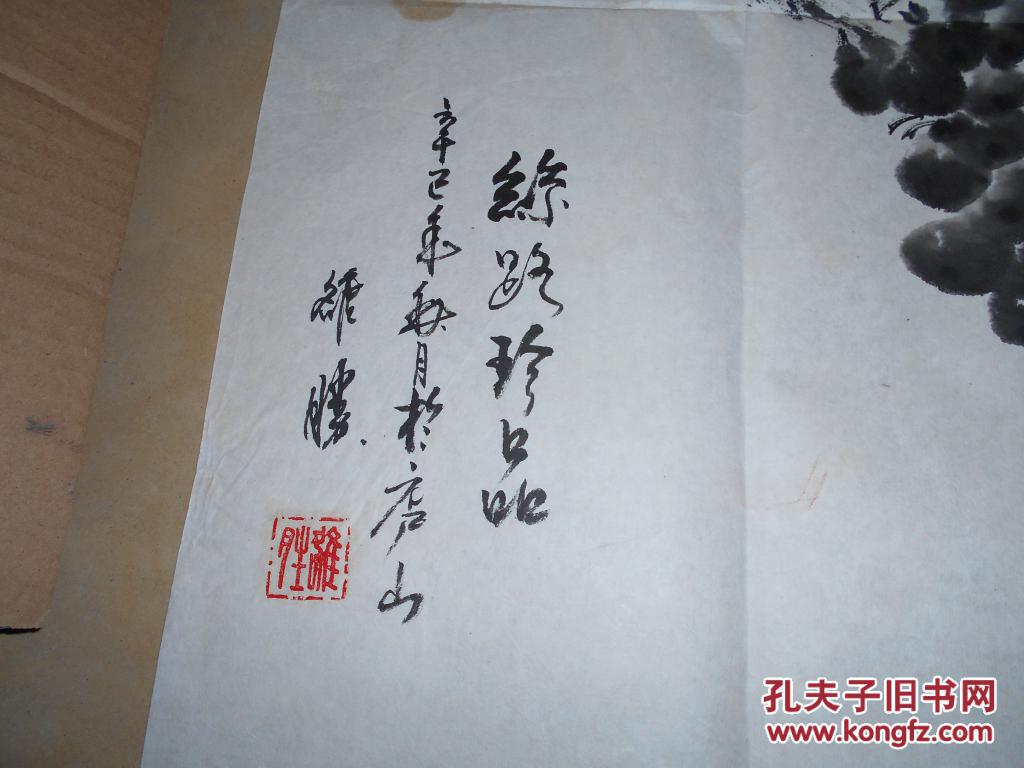 絲路珍品
辛巳年秋月於庐山
維勝
維胜
孔夫子旧书网
www.kongfz.com